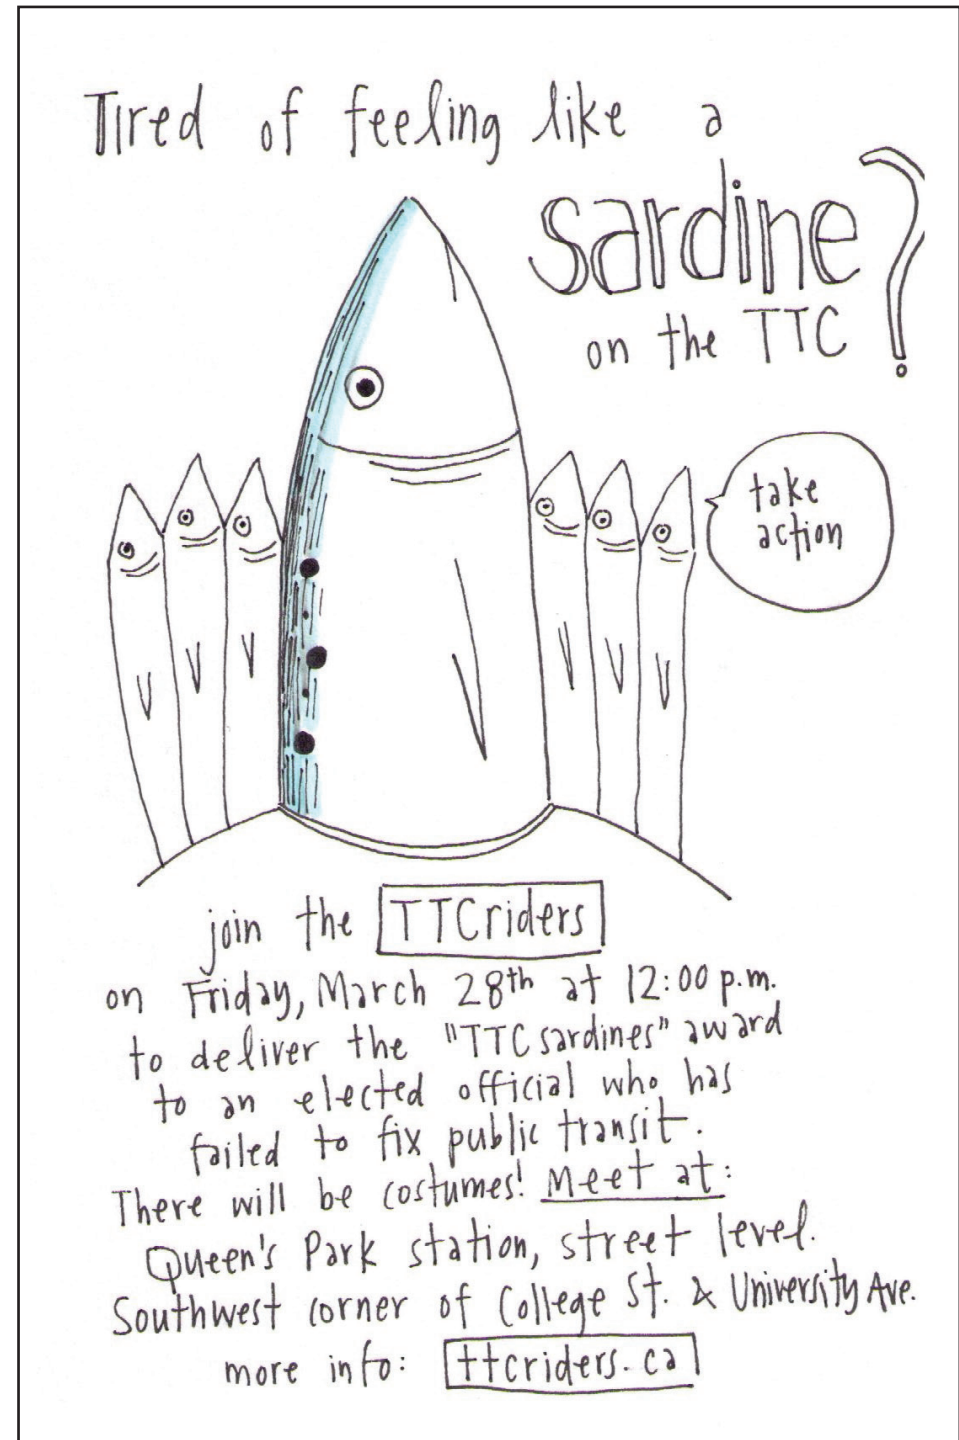 Tired of feeling like a
sardine?
on the TTC
take
action
join the TTCriders
on Friday, March 28th at 12:00 p.m.
to deliver the "TTC sardines" award
to an elected official who has
failed to fix public transit.
There will be costumes! Meet at:
Queen's Park station, street level.
Southwest corner of College St. & University Ave.
more info: ttcriders.ca